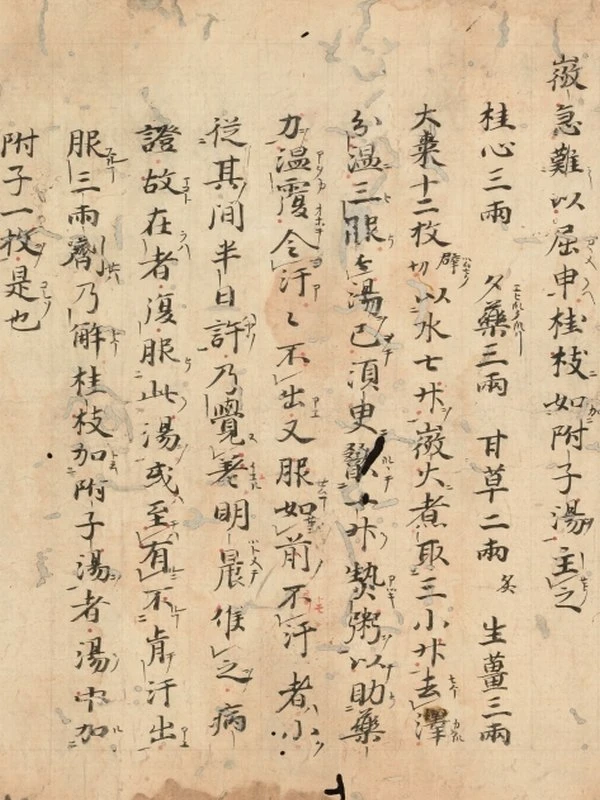 微急難以屈申桂枝如附子湯主之
桂心三兩 夕藥三兩 甘草二兩炙 生薑三兩
大棗十二枚擘切以水七升微火煮取三小升去滓
分温三服々湯已須更升熱粥以助藥
力温覆令汗々不出又服如前不汗者小
從其間半日許乃覺著明晨候之病
證故在者復服此湯或至有不肯汗出
服三兩劑乃解桂枝加附子湯者湯中加
附子一枚是也